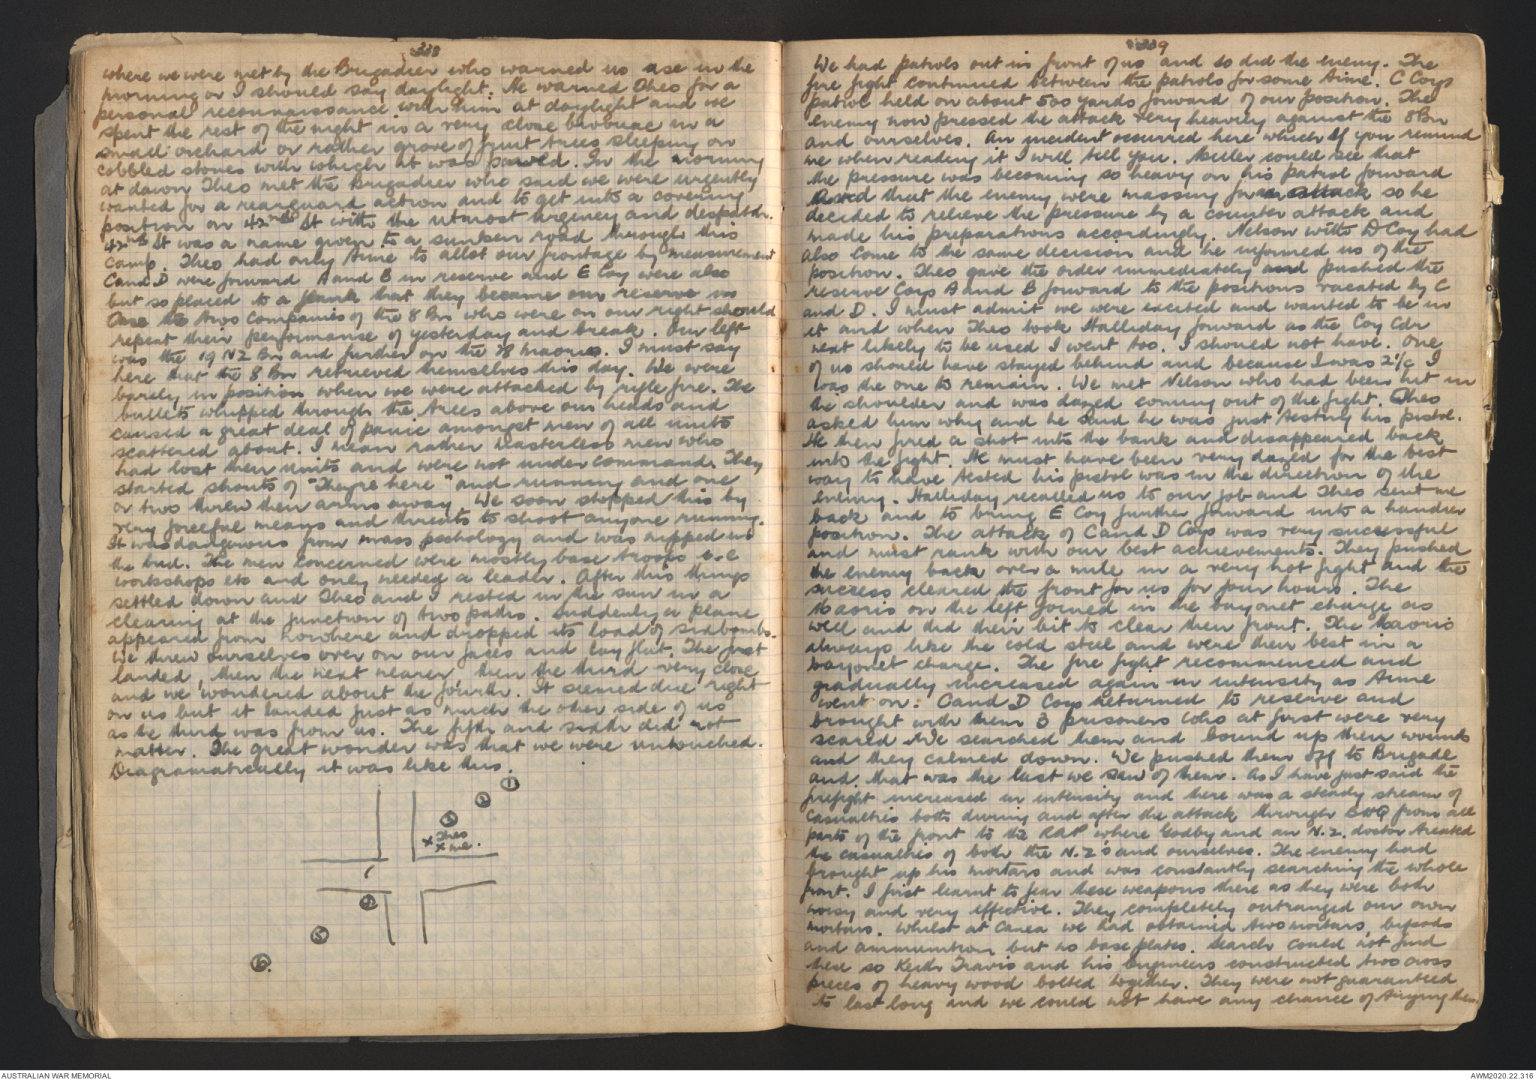 338
where we were met by the Brigadier who warned us use in the
morning or I should say daylight. He warned Theo for a
personal reconnaissance with him at daylight and we
spent the rest of the night in a very close bivouac in a
small orchard or rather grove of fruit trees sleeping on
cobbled stones with which it was paved. In the morning
at dawn Theo met the Brigadier who said we were urgently
wanted for a rearguard action and to get into a covering
position on 42nd St with the utmost urgency and despatch.
42nd St was a name given to a sunken road through this
camp. Theo had only time to allot our frontage by measurement
C and D were forward A and B in reserve and E Coy were also
but so placed to a flank that they became our reserve in
Case the two companies of the 8 Bn who were on our right should
repeat their performance of yesterday and break. Our left
was the 19 NZ Bn and further on the 28 Maoris. I must say
here that the 8 Bn retrieved themselves this day. We were
barely in position when we were attacked by rifle fire. The
bullets whipped through the trees above our heads and
caused a great deal of panic amongst men of all units
scattered about. I mean rather masterless men who
had lost their units and were not under command. They
started shouts of "They're here" and running and one
or two threw their arms away. We soon stopped this by
very forceful means and threats to shoot anyone running.
It was dangerous from mass pschology and was nipped in
the bud. The men concerned were mostly base troops i.e
workshops etc and only needed a leader. After this things
settled down and Theo and I rested in the sun in a
clearing at the junction of two paths. Suddenly a plane
appeared from nowhere and dropped its load of six bombs.
We threw ourselves over on our faces and lay flat. The first
landed, then the next nearer, then the third very close
and we wondered about the fourth. It seemed due right
on us but it landed just as much the other side of us
as the third was from us. The fifth and sixth did not
matter. The great wonder was that we were untouched.
Diagramatically it was like this.
①
②
③
x Theo
x me.
⑤
⑥
339
We had patrols out in front of us and so did the enemy. The
fire fight continued between the patrols for some time. C Coys
patrol held on about 500 yards forward of our position. The
enemy now pressed the attack very heavily against the 8 Bn
and ourselves. An incident occurred here which if you remind
me when reading it I will tell you. Miller could see that
the pressure was becoming so heavy on his patrol forward
and that the enemy were massing for an attack so he
decided to relieve the pressure by a counter attack and
made his preparations accordingly. Nelson with D Coy had
also come to the same decision and he informed us of the
position. Theo gave the order immediately and pushed the
reserve Coys A and B forward to the positions vacated by C
and D. I must admit we were excited and wanted to be in
it and when Theo took Halliday forward as the Coy Cdr
next likely to be used I went too. I should not have. One
of us should have stayed behind and because I was 2i/c I
was the one to remain. We met Nelson who had been hit in
the shoulder and was dazed coming out of the fight. Theo
asked him why and he said he was just testing his pistol.
He then fired a shot into the bank and disappeared back
into the fight. He must have been very dazed for the best
way to have tested his pistol was in the direction of the
enemy. Halliday recalled us to our job and Theo sent me
back and to bring E Coy further forward into a handier
position. The attack of C and D Coys was very successful
and must rank with our best achievements. They pushed
the enemy back over a mile in a very hot fight and the
success cleared the front for us for four hours. The
Maoris on the left joined in the bayonet charge as
well and did their bit to clear their front. The Maoris
always like the cold steel and were their best in a
bayonet charge. The fire fight recommenced and
gradually increased again in intensity as time
went on. C and D Coys returned to reserve and
brought with them 3 prisoners who at first were very
scared. We searched them and bound up their wounds
and they calmed down. We pushed them off to Brigade
and that was the last we saw of them. As I have just said the
firefight increased in intensity and there was a steady stream of
casualties both during and after the attack through BHQ from all
parts of the front to the RAP where Godby and an N.Z. doctor treated
the casualties of both the N.Z's and ourselves. The enemy had
brought up his mortars and was constantly searching the whole
front. I first learnt to fear these weapons there as they were both
noisy and very effective. They completely outranged our own
mortars. Whilst at Canea we had obtained two mortars, bipods
and ammunition but no base plates. Search could not find
these so Keith Travis and his Engineers constructed two cross
pieces of heavy wood bolted together. They were not guaranteed
to last long and we could not have any chance of trying them
AUSTRALIAN WAR MEMORIAL
AWM2020.22.316